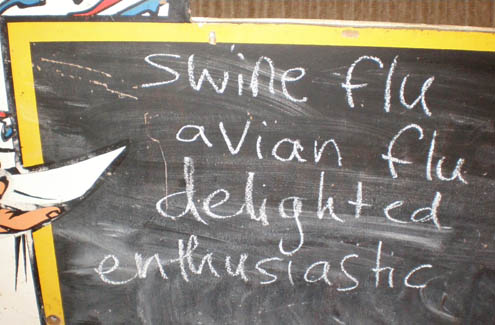 swine flu
avian flu
delighted
enthusiastic